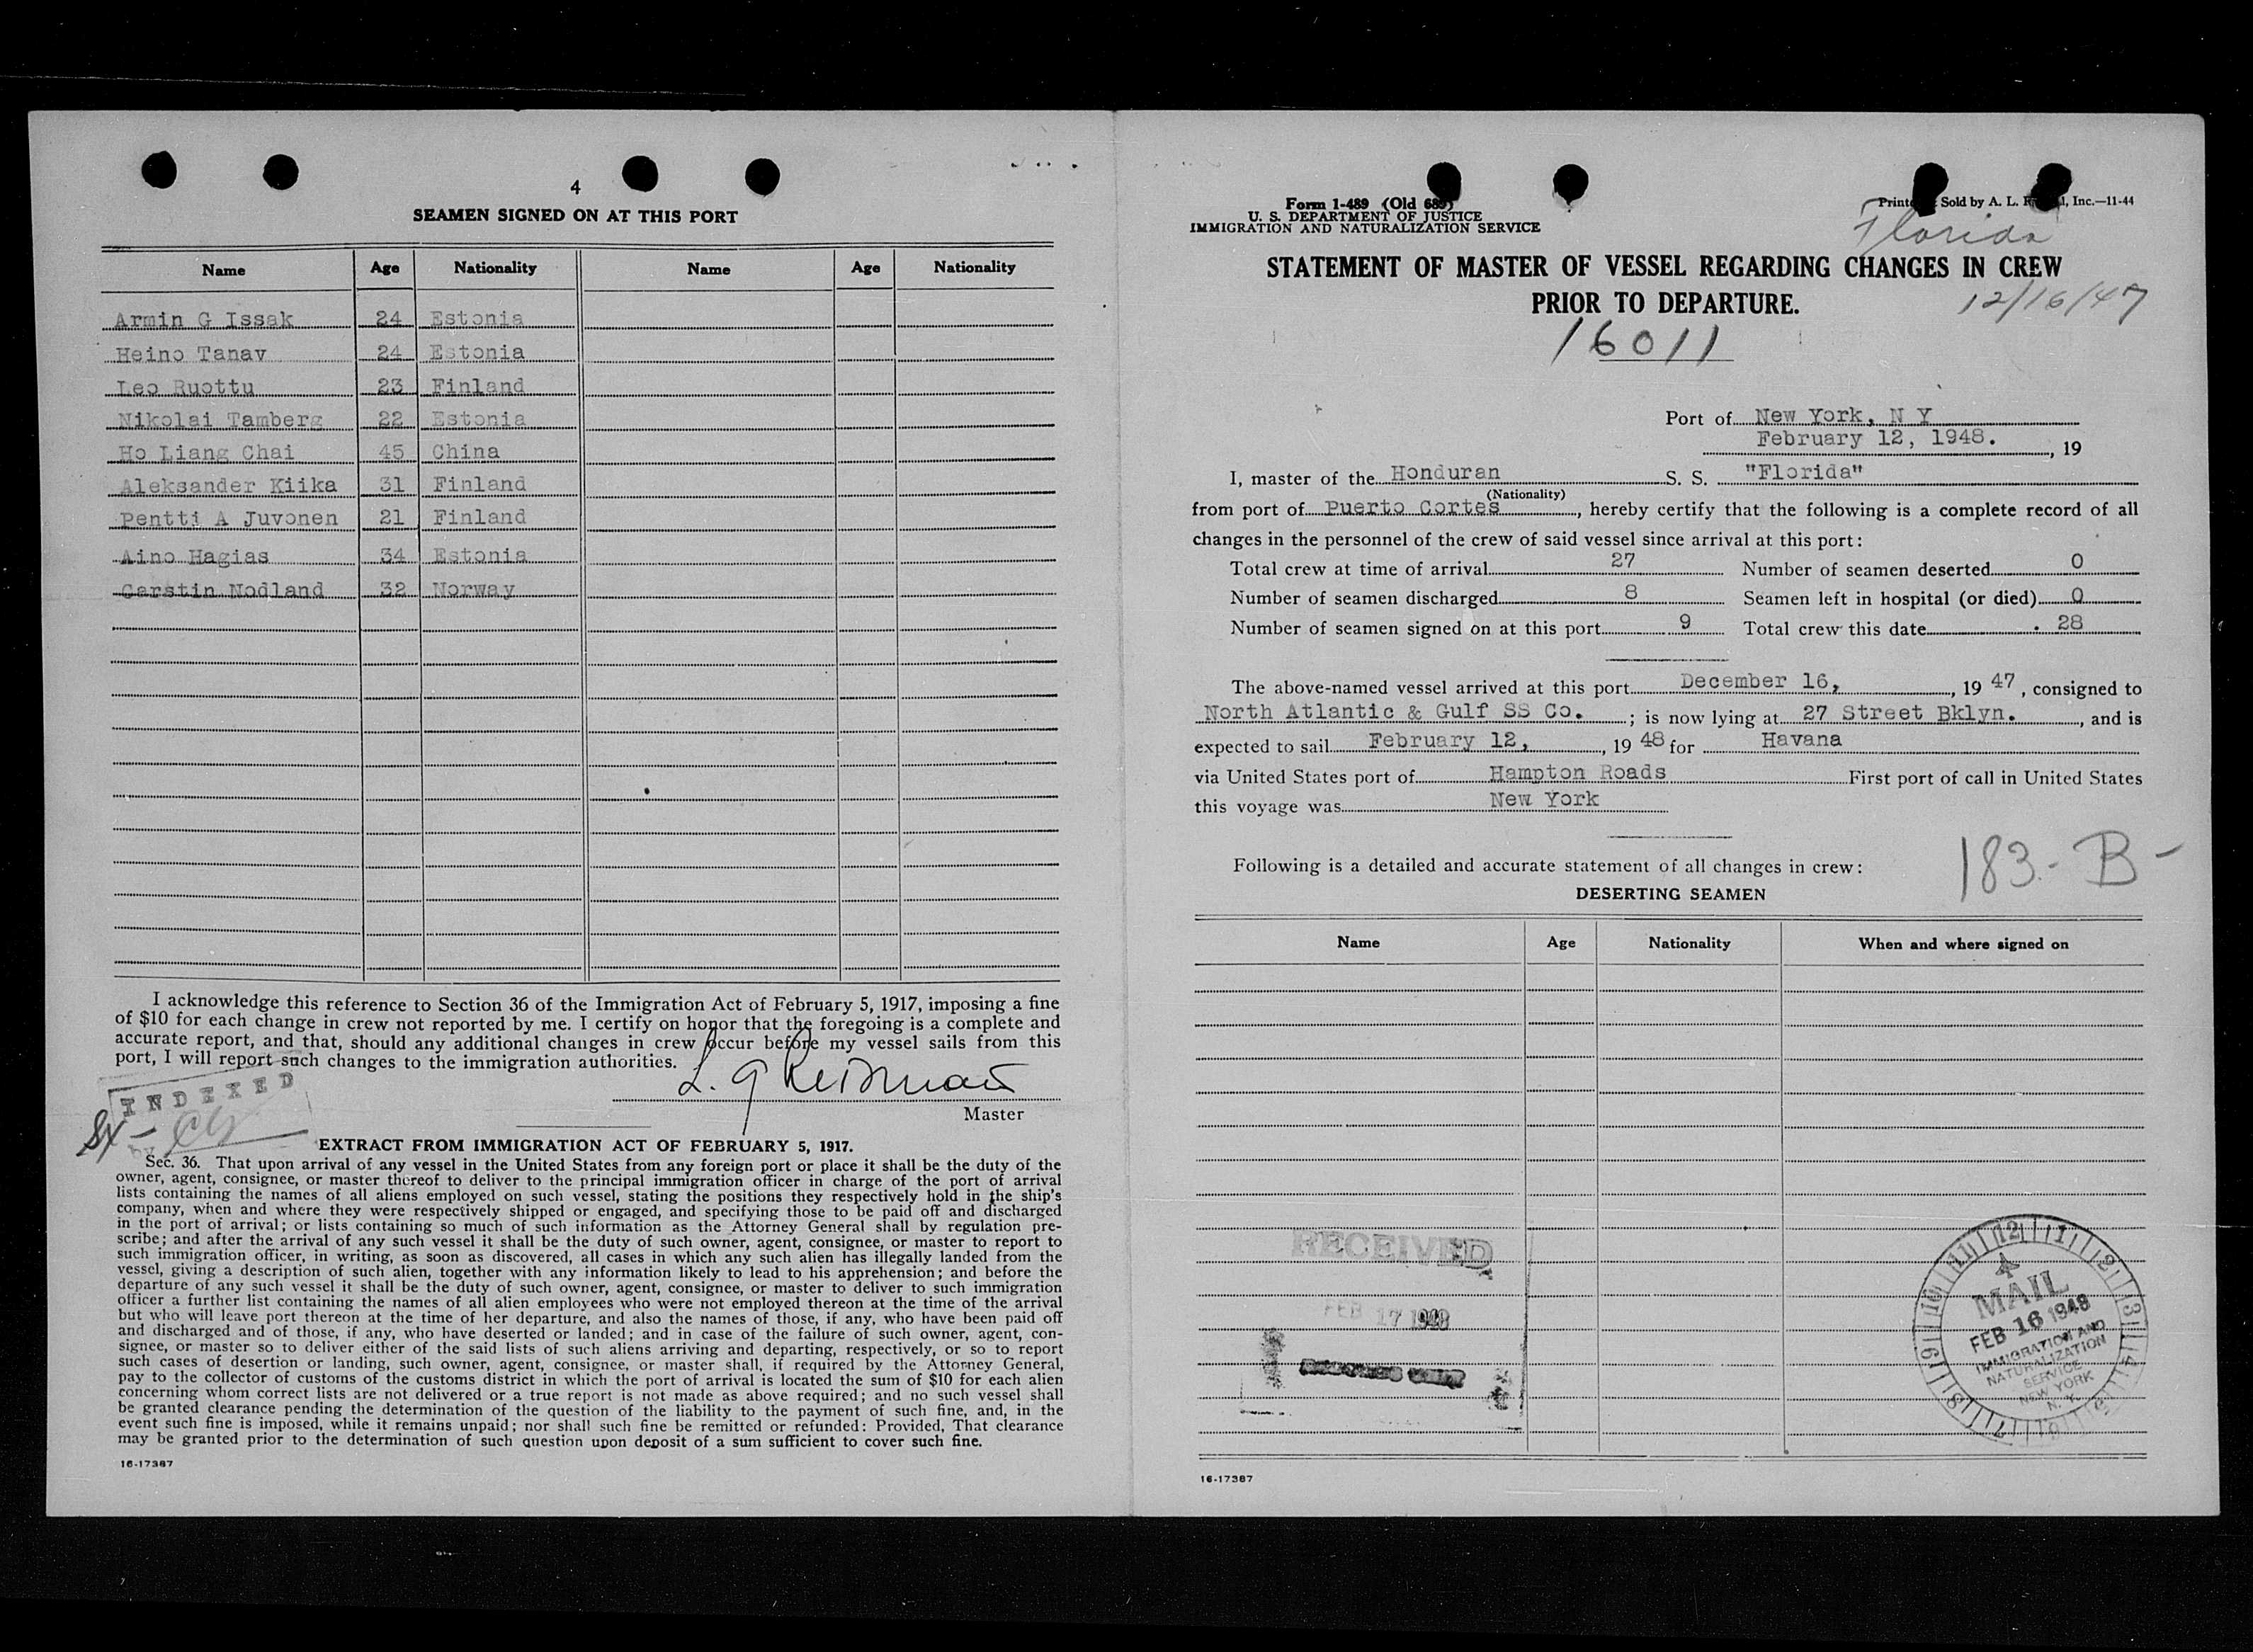 4
SEAMEN SIGNED ON AT THIS PORT
Name Age Nationality Name Age Nationality
Armin G Issak 24 Estonia
Heino Tanav 24 Estonia
Leo Ruottu 23 Finland
Nikolai Tamberg 22 Estonia
Ho Liang Chai 45 China
Aleksander Kiika 31 Finland
Pentti A Juvonen 21 Finland
Aino Hagias 34 Estonia
Carstin Nodland 32 Norway
I acknowledge this reference to Section 36 of the Immigration Act of February 5, 1917, imposing a fine
of $10 for each change in crew not reported by me. I certify on honor that the foregoing is a complete and
accurate report, and that, should any additional changes in crew occur before my vessel sails from this
port, I will report such changes to the immigration authorities.
Master
INDEXED
by
EXTRACT FROM IMMIGRATION ACT OF FEBRUARY 5, 1917.
Sec. 36. That upon arrival of any vessel in the United States from any foreign port or place it shall be the duty of the
owner, agent, consignee, or master thereof to deliver to the principal immigration officer in charge of the port of arrival
lists containing the names of all aliens employed on such vessel, stating the positions they respectively hold in the ship's
company, when and where they were respectively shipped or engaged, and specifying those to be paid off and discharged
in the port of arrival; or lists containing so much of such information as the Attorney General shall by regulation pre-
scribe; and after the arrival of any such vessel it shall be the duty of such owner, agent, consignee, or master to report to
such immigration officer, in writing, as soon as discovered, all cases in which any such alien has illegally landed from the
vessel, giving a description of such alien, together with any information likely to lead to his apprehension; and before the
departure of any such vessel it shall be the duty of such owner, agent, consignee, or master to deliver to such immigration
officer a further list containing the names of all alien employees who were not employed thereon at the time of the arrival
but who will leave port thereon at the time of her departure, and also the names of those, if any, who have been paid off
and discharged and of those, if any, who have deserted or landed; and in case of the failure of such owner, agent, con-
signee, or master so to deliver either of the said lists of such aliens arriving and departing, respectively, or so to report
such cases of desertion or landing, such owner, agent, consignee, or master shall, if required by the Attorney General,
pay to the collector of customs of the customs district in which the port of arrival is located the sum of $10 for each alien
concerning whom correct lists are not delivered or a true report is not made as above required; and no such vessel shall
be granted clearance pending the determination of the question of the liability to the payment of such fine, and, in the
event such fine is imposed, while it remains unpaid; nor shall such fine be remitted or refunded: Provided, That clearance
may be granted prior to the determination of such question upon deposit of a sum sufficient to cover such fine.
16-17387
Form I-489 (Old 689)
U. S. DEPARTMENT OF JUSTICE
IMMIGRATION AND NATURALIZATION SERVICE
Sold by A. L. Inc.—11-44
Florida
STATEMENT OF MASTER OF VESSEL REGARDING CHANGES IN CREW
PRIOR TO DEPARTURE.
12/16/47
16011
Port of New York, N Y
February 12, 1948. , 19
I, master of the Honduran S. S. "Florida"
(Nationality)
from port of Puerto Cortes , hereby certify that the following is a complete record of all
changes in the personnel of the crew of said vessel since arrival at this port:
Total crew at time of arrival 27 Number of seamen deserted 0
Number of seamen discharged 8 Seamen left in hospital (or died) 0
Number of seamen signed on at this port 9 Total crew this date 28
The above-named vessel arrived at this port December 16, , 19 47, consigned to
North Atlantic & Gulf SS Co. ; is now lying at 27 Street Bklyn. , and is
expected to sail February 12, , 19 48 for Havana
via United States port of Hampton Roads First port of call in United States
this voyage was New York
183-B-
Following is a detailed and accurate statement of all changes in crew:
DESERTING SEAMEN
Name Age Nationality When and where signed on
RECEIVED
FEB 17 1948
12 1 2 3 4 5 6 7 8 9 10 11
MAIL
FEB 16 1948
IMMIGRATION AND
NATURALIZATION
SERVICE
NEW YORK
N. Y.
16-17387